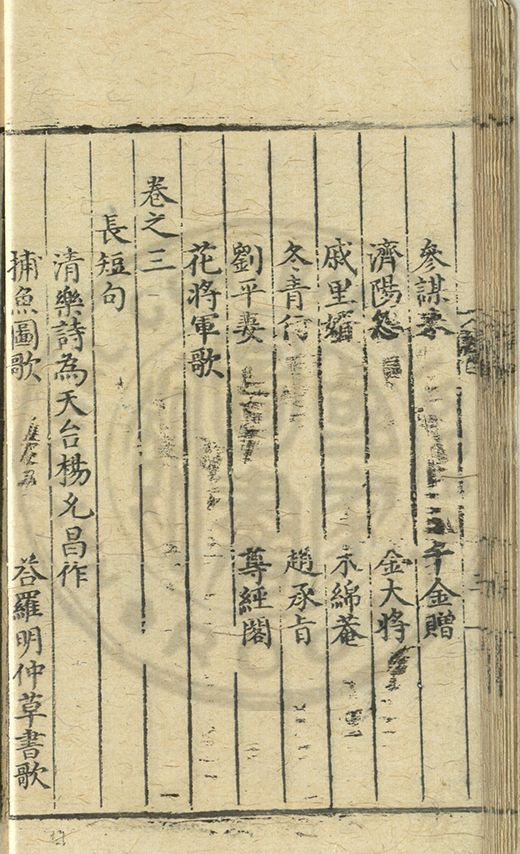 參謀來 千金贈
濟陽怨 金大將
戚里婿 木綿菴
冬青行 趙承旨
劉平妻 尊經閣
花將軍歌
卷之三
長短句
清樂詩為天台楊允昌作
捕魚圖歌 荅羅明仲草書歌